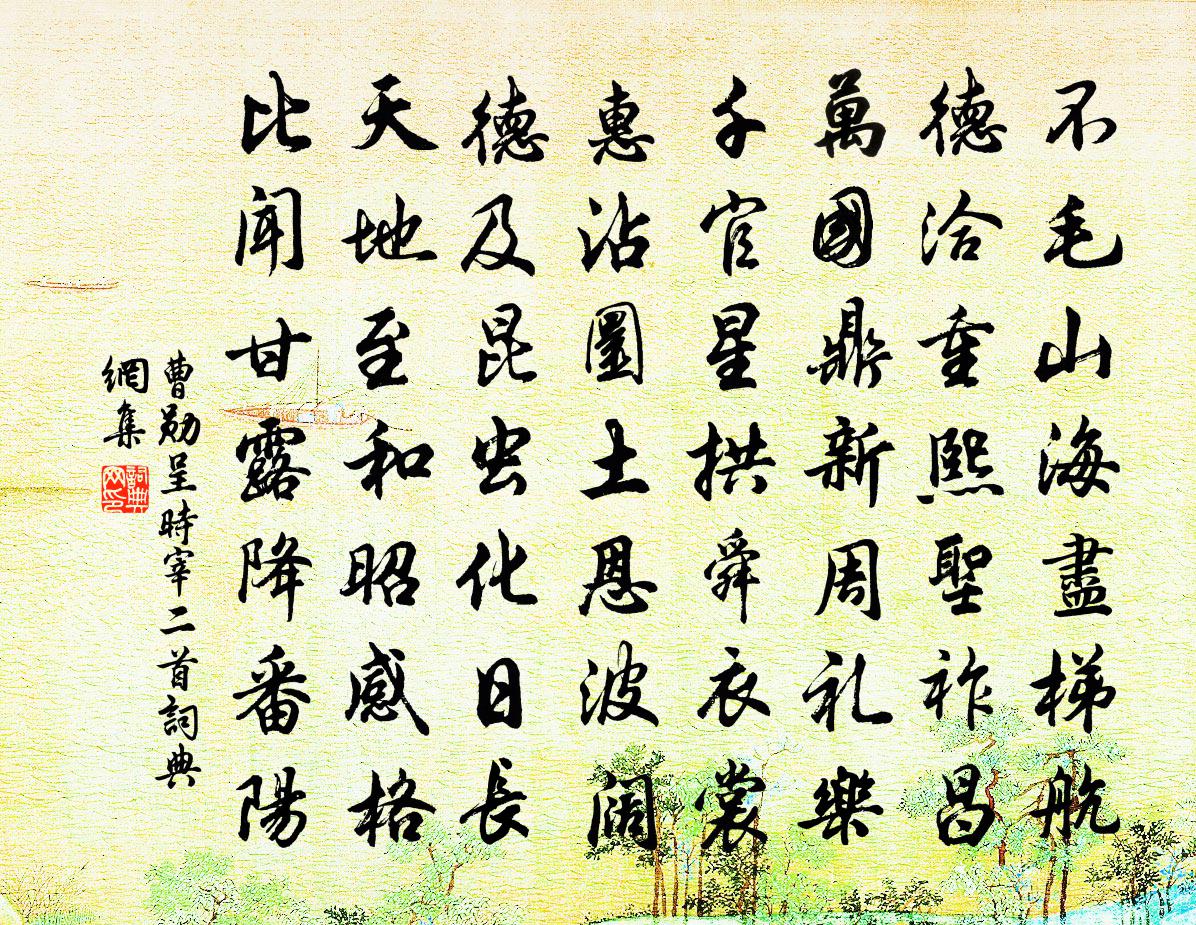 不毛山海盡梯航
德洽重熙聖祚昌
萬國鼎新周礼樂
千官星拱舜衣裳
惠沾圖土恩波闊
德及昆虫化日長
天地至和昭感格
比聞甘露降番陽
曹勛呈時宰二首詞典
網集
詞典網印